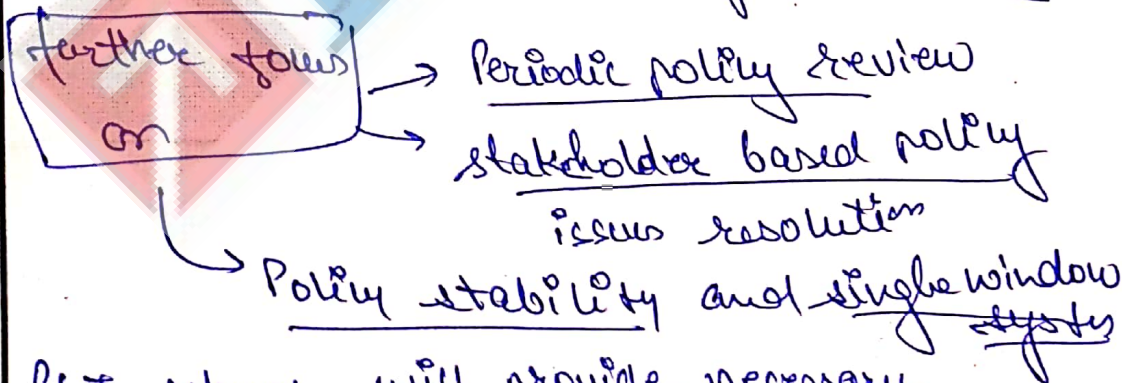 further focus
on
→ Periodic policy review
→ stakeholder based policy
issues resolution
→ Policy stability and single window
system
will provide necessary